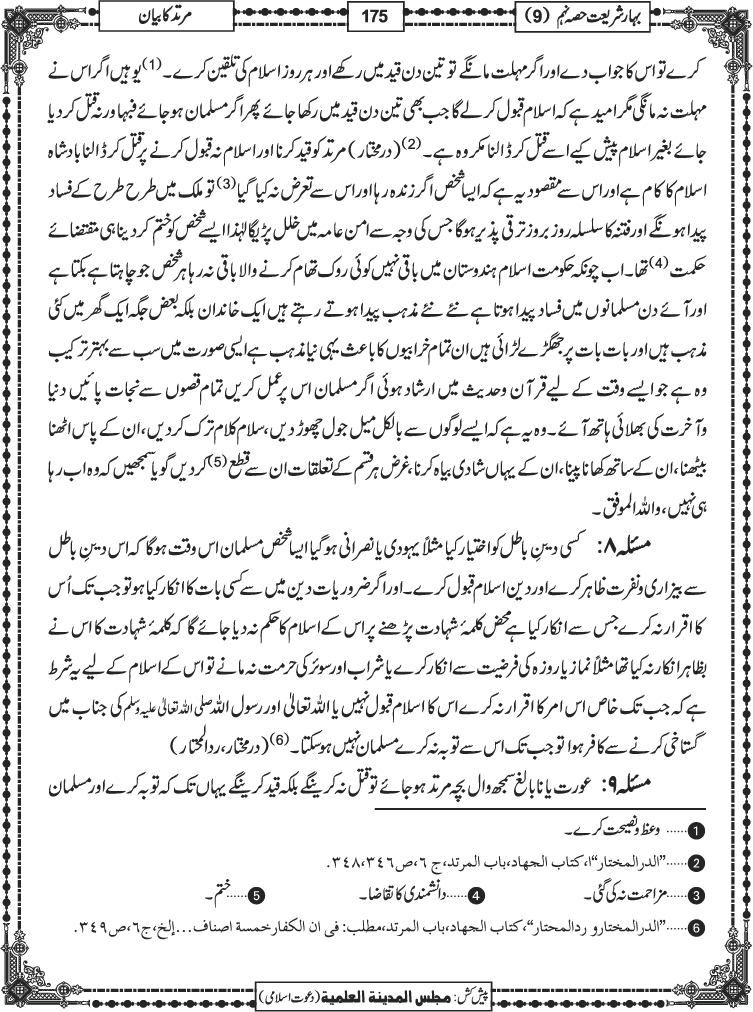 بہار شریعت حصہ نہم (9)
175
مرتد کا بیان
کرے تو اس کا جواب دے اور اگر مہلت مانگے تو تین دن قید میں رکھے اور ہر روز اسلام کی تلقین کرے۔(1) یوہیں اگر اس نے
مہلت نہ مانگی مگر امید ہے کہ اسلام قبول کر لے گا جب بھی تین دن قید میں رکھا جائے پھر اگر مسلمان ہو جائے فبہا ورنہ قتل کر دیا
جائے بغیر اسلام پیش کیے اسے قتل کر ڈالنا مکروہ ہے۔(2) (درمختار) مرتد کو قید کرنا اور اسلام نہ قبول کرنے پر قتل کر ڈالنا بادشاہ
اسلام کا کام ہے اور اس سے مقصود یہ ہے کہ ایسا شخص اگر زندہ رہا اور اس سے تعرض نہ کیا گیا(3) تو ملک میں طرح طرح کے فساد
پیدا ہونگے اور فتنہ کا سلسلہ روز بروز ترقی پذیر ہوگا جس کی وجہ سے امن عامہ میں خلل پڑیگا لہٰذا ایسے شخص کو ختم کر دینا ہی مقتضائے
حکمت(4) تھا۔ اب چونکہ حکومت اسلام ہندوستان میں باقی نہیں کوئی روک تھام کرنے والا باقی نہ رہا ہر شخص جو چاہتا ہے بکتا ہے
اور آئے دن مسلمانوں میں فساد پیدا ہوتا ہے نئے نئے مذہب پیدا ہوتے رہتے ہیں ایک خاندان بلکہ بعض جگہ ایک گھر میں کئی
مذہب ہیں اور بات بات پر جھگڑے لڑائی ہیں ان تمام خرابیوں کا باعث یہی نیا مذہب ہے ایسی صورت میں سب سے بہتر ترکیب
وہ ہے جو ایسے وقت کے لیے قرآن وحدیث میں ارشاد ہوئی اگر مسلمان اس پر عمل کریں تمام قصوں سے نجات پائیں دنیا
و آخرت کی بھلائی ہاتھ آئے۔ وہ یہ ہے کہ ایسے لوگوں سے بالکل میل جول چھوڑ دیں، سلام کلام ترک کر دیں، ان کے پاس اٹھنا
بیٹھنا، ان کے ساتھ کھانا پینا، ان کے یہاں شادی بیاہ کرنا، غرض ہر قسم کے تعلقات ان سے قطع(5) کر دیں گویا سمجھیں کہ وہ اب رہا
ہی نہیں، واللہ الموفق۔
مسئلہ ۸: کسی دینِ باطل کو اختیار کیا مثلاً یہودی یا نصرانی ہو گیا ایسا شخص مسلمان اس وقت ہوگا کہ اس دینِ باطل
سے بیزاری و نفرت ظاہر کرے اور دین اسلام قبول کرے۔ اور اگر ضروریات دین میں سے کسی بات کا انکار کیا ہو تو جب تک اُس
کا اقرار نہ کرے جس سے انکار کیا ہے محض کلمۂ شہادت پڑھنے پر اس کے اسلام کا حکم نہ دیا جائے گا کہ کلمۂ شہادت کا اس نے
بظاہر انکار نہ کیا تھا مثلاً نماز یا روزہ کی فرضیت سے انکار کرے یا شراب اور سوئر کی حرمت نہ مانے تو اس کے اسلام کے لیے یہ شرط
ہے کہ جب تک خاص اس امر کا اقرار نہ کرے اس کا اسلام قبول نہیں یا اللہ تعالیٰ اور رسول اللہ صلی اللہ تعالیٰ علیہ وسلم کی جناب میں
گستاخی کرنے سے کافر ہوا تو جب تک اس سے توبہ نہ کرے مسلمان نہیں ہو سکتا۔(6) (درمختار، ردالمحتار)
مسئلہ ۹: عورت یا نابالغ سمجھ وال بچہ مرتد ہو جائے تو قتل نہ کرینگے بلکہ قید کرینگے یہاں تک کہ توبہ کرے اور مسلمان
1 ...... وعظ و نصیحت کرے۔
2 ......"الدرالمختار"ا، کتاب الجهاد، باب المرتد، ج ٦، ص٣٤٦، ٣٤٨.
3 ...... مزاحمت نہ کی گئی۔ 4 ...... دانشمندی کا تقاضا۔ 5 ...... ختم۔
6 ......"الدرالمختارو ردالمحتار"، کتاب الجهاد، باب المرتد، مطلب: فی ان الکفار خمسة اصناف...إلخ، ج٦، ص٣٤٩.
پیش کش: مجلس المدينة العلمية (دعوت اسلامی)